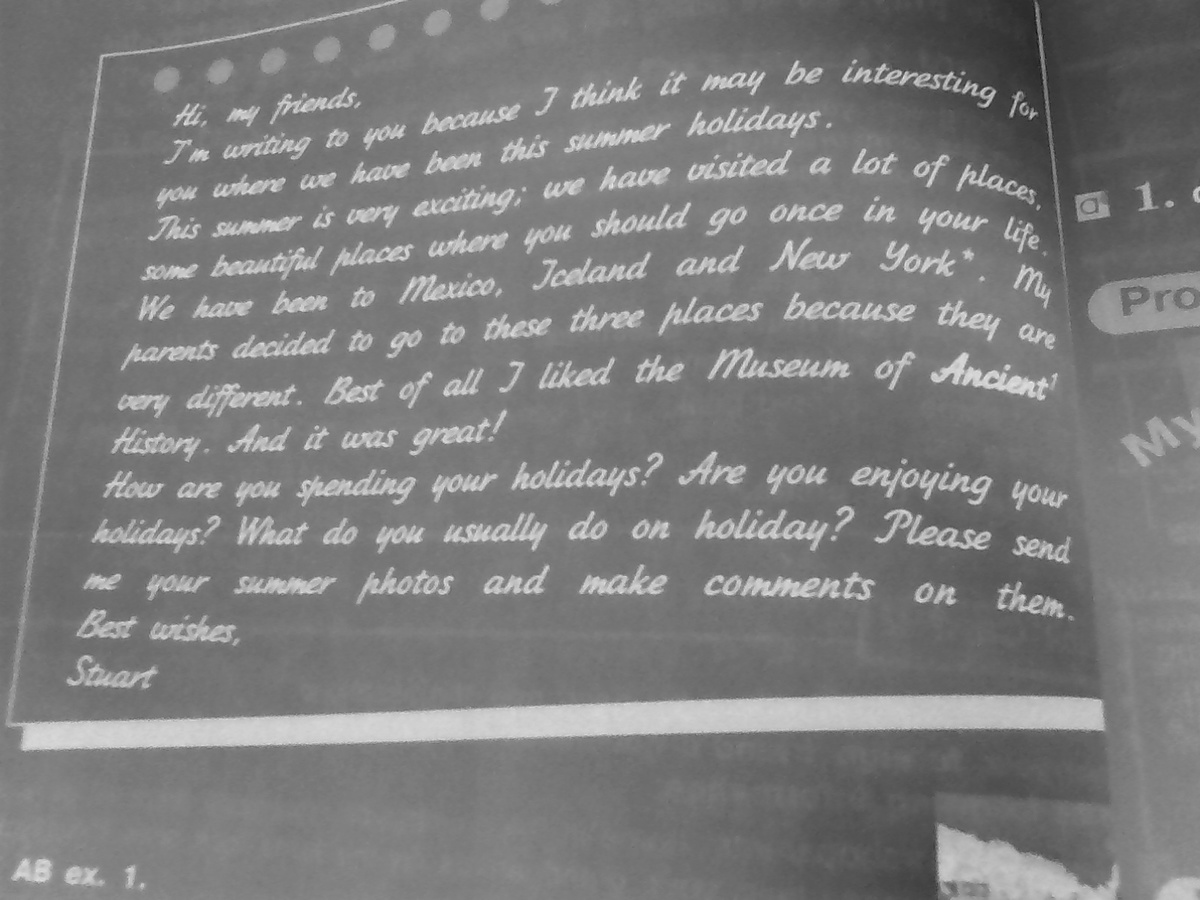 Hi, my friends,
I'm writing to you because I think it may be interesting for
you where we have been this summer holidays.
This summer is very exciting; we have visited a lot of places,
some beautiful places where you should go once in your life.
We have been to Mexico, Iceland and New York*. My
parents decided to go to these three places because they are
very different. Best of all I liked the Museum of Ancient¹
History. And it was great!
How are you spending your holidays? Are you enjoying your
holidays? What do you usually do on holiday? Please send
me your summer photos and make comments on them.
Best wishes,
Stuart
AB ex. 1.
a 1.
My